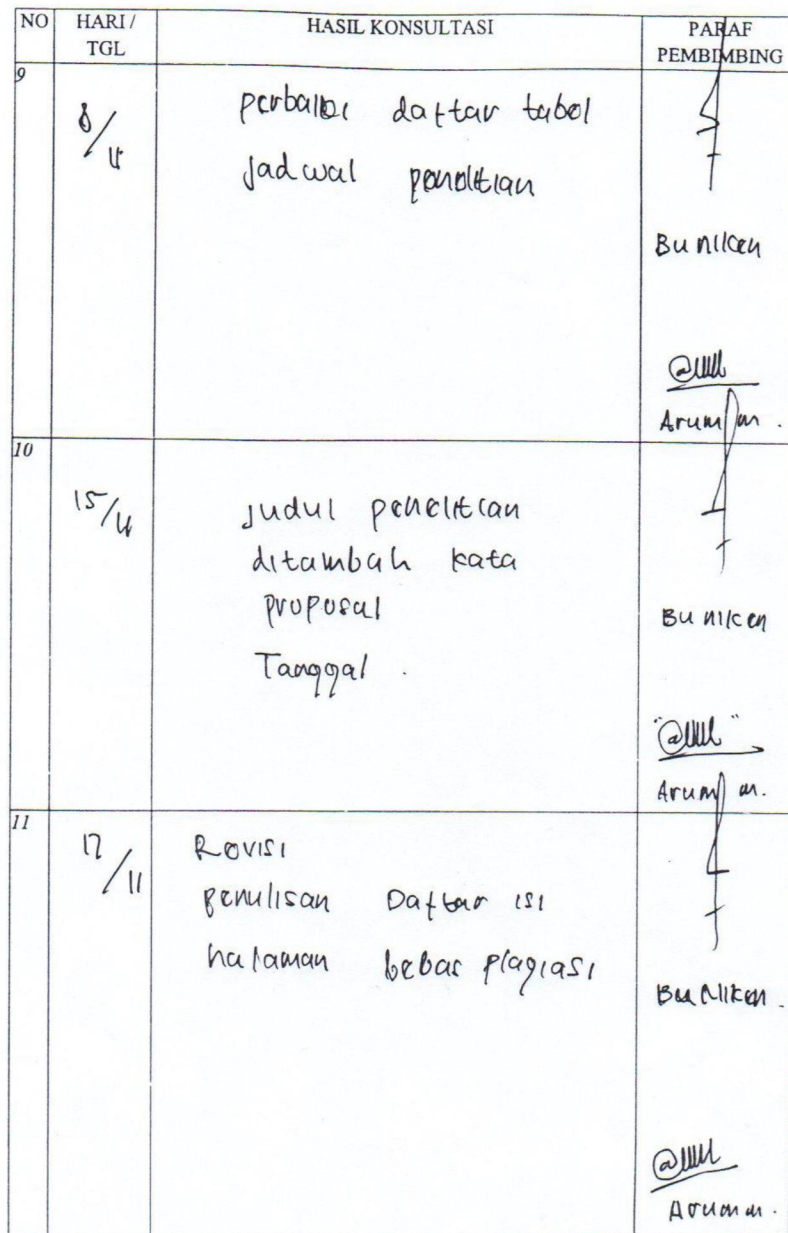 NO HARI / TGL HASIL KONSULTASI PARAF PEMBIMBING
9
8/11
perbaiki daftar tabel
jadwal penelitian
Bu niken
Arum m.
10
15/11
judul penelitian
ditambah kata
proposal
Tanggal.
Bu niken
Arum m.
11
17/11
Revisi
penulisan Daftar isi
halaman bebas plagiasi
Bu Niken.
Arum m.